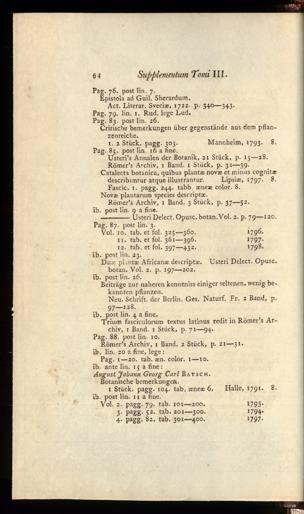 64 Supplementum Tomi III.
Pag. 76. post lin. 7.
Epistola ad Guil. Sherardum,
Act. Literar. Sveciæ, 1722. p. 340—343.
Pag. 79. lin. 1. Rud. lege Lud.
Pag. 83. post lin. 26.
Critische bemerkungen über gegenstände aus dem pflan-
zenreiche.
1. 2 Stück, pagg. 303. Mannheim, 1793. 8.
Pag. 85. post lin. 16 a fine.
Usteri's Annalen der Botanik, 21 Stück, p. 15—28.
Römer's Archiv, 1 Band. 1 Stück, p. 32—39.
Catalecta botanica, quibus plantæ novæ et minus cognitæ
describuntur atque illustrantur. Lipsiæ, 1797. 8.
Fascic. 1. pagg. 244. tabb. æneæ color. 8.
Novæ plantarum species descriptæ.
Römer's Archiv, 1 Band. 3 Stück, p. 37—52.
ib. post lin. 9 a fine.
——— Usteri Delect. Opusc. botan. Vol. 2. p. 79—120.
Pag. 87. post lin. 3.
Vol. 10. tab. et fol. 325—360. 1796.
11. tab. et fol. 361—396. 1797.
12. tab. et fol. 397—432. 1798.
ib. post lin. 23.
Duæ plantæ Africanæ descriptæ. Usteri Delect. Opusc.
botan. Vol. 2. p. 197—202.
ib. post lin. 26.
Beiträge zur naheren kenntniss einiger seltenen, wenig be-
kannten pflanzen.
Neu. Schrift. der Berlin. Ges. Naturf. Fr. 2 Band, p.
97—128.
ib. post lin. 4 a fine.
Trium fasciculorum textus latinus redit in Römer's Ar-
chiv, 1 Band. 1 Stück, p. 71—94.
Pag. 88. post lin. 10.
Römer's Archiv, 1 Band. 2 Stück, p. 21—31.
ib. lin. 20 a fine, lege:
Pag. 1—20. tab. æn. color. 1—10.
ib. ante lin. 15 a fine:
August Johann Georg Carl BATSCH.
Botanische bemerkungen.
1 Stück. pagg. 104. tab. æneæ 6. Halle, 1791. 8.
ib. post lin. 11 a fine.
Vol. 2. pagg. 79. tab. 101—200. 1793.
3. pagg. 52. tab. 201—300. 1794.
4. pagg. 82. tab. 301—400. 1797.